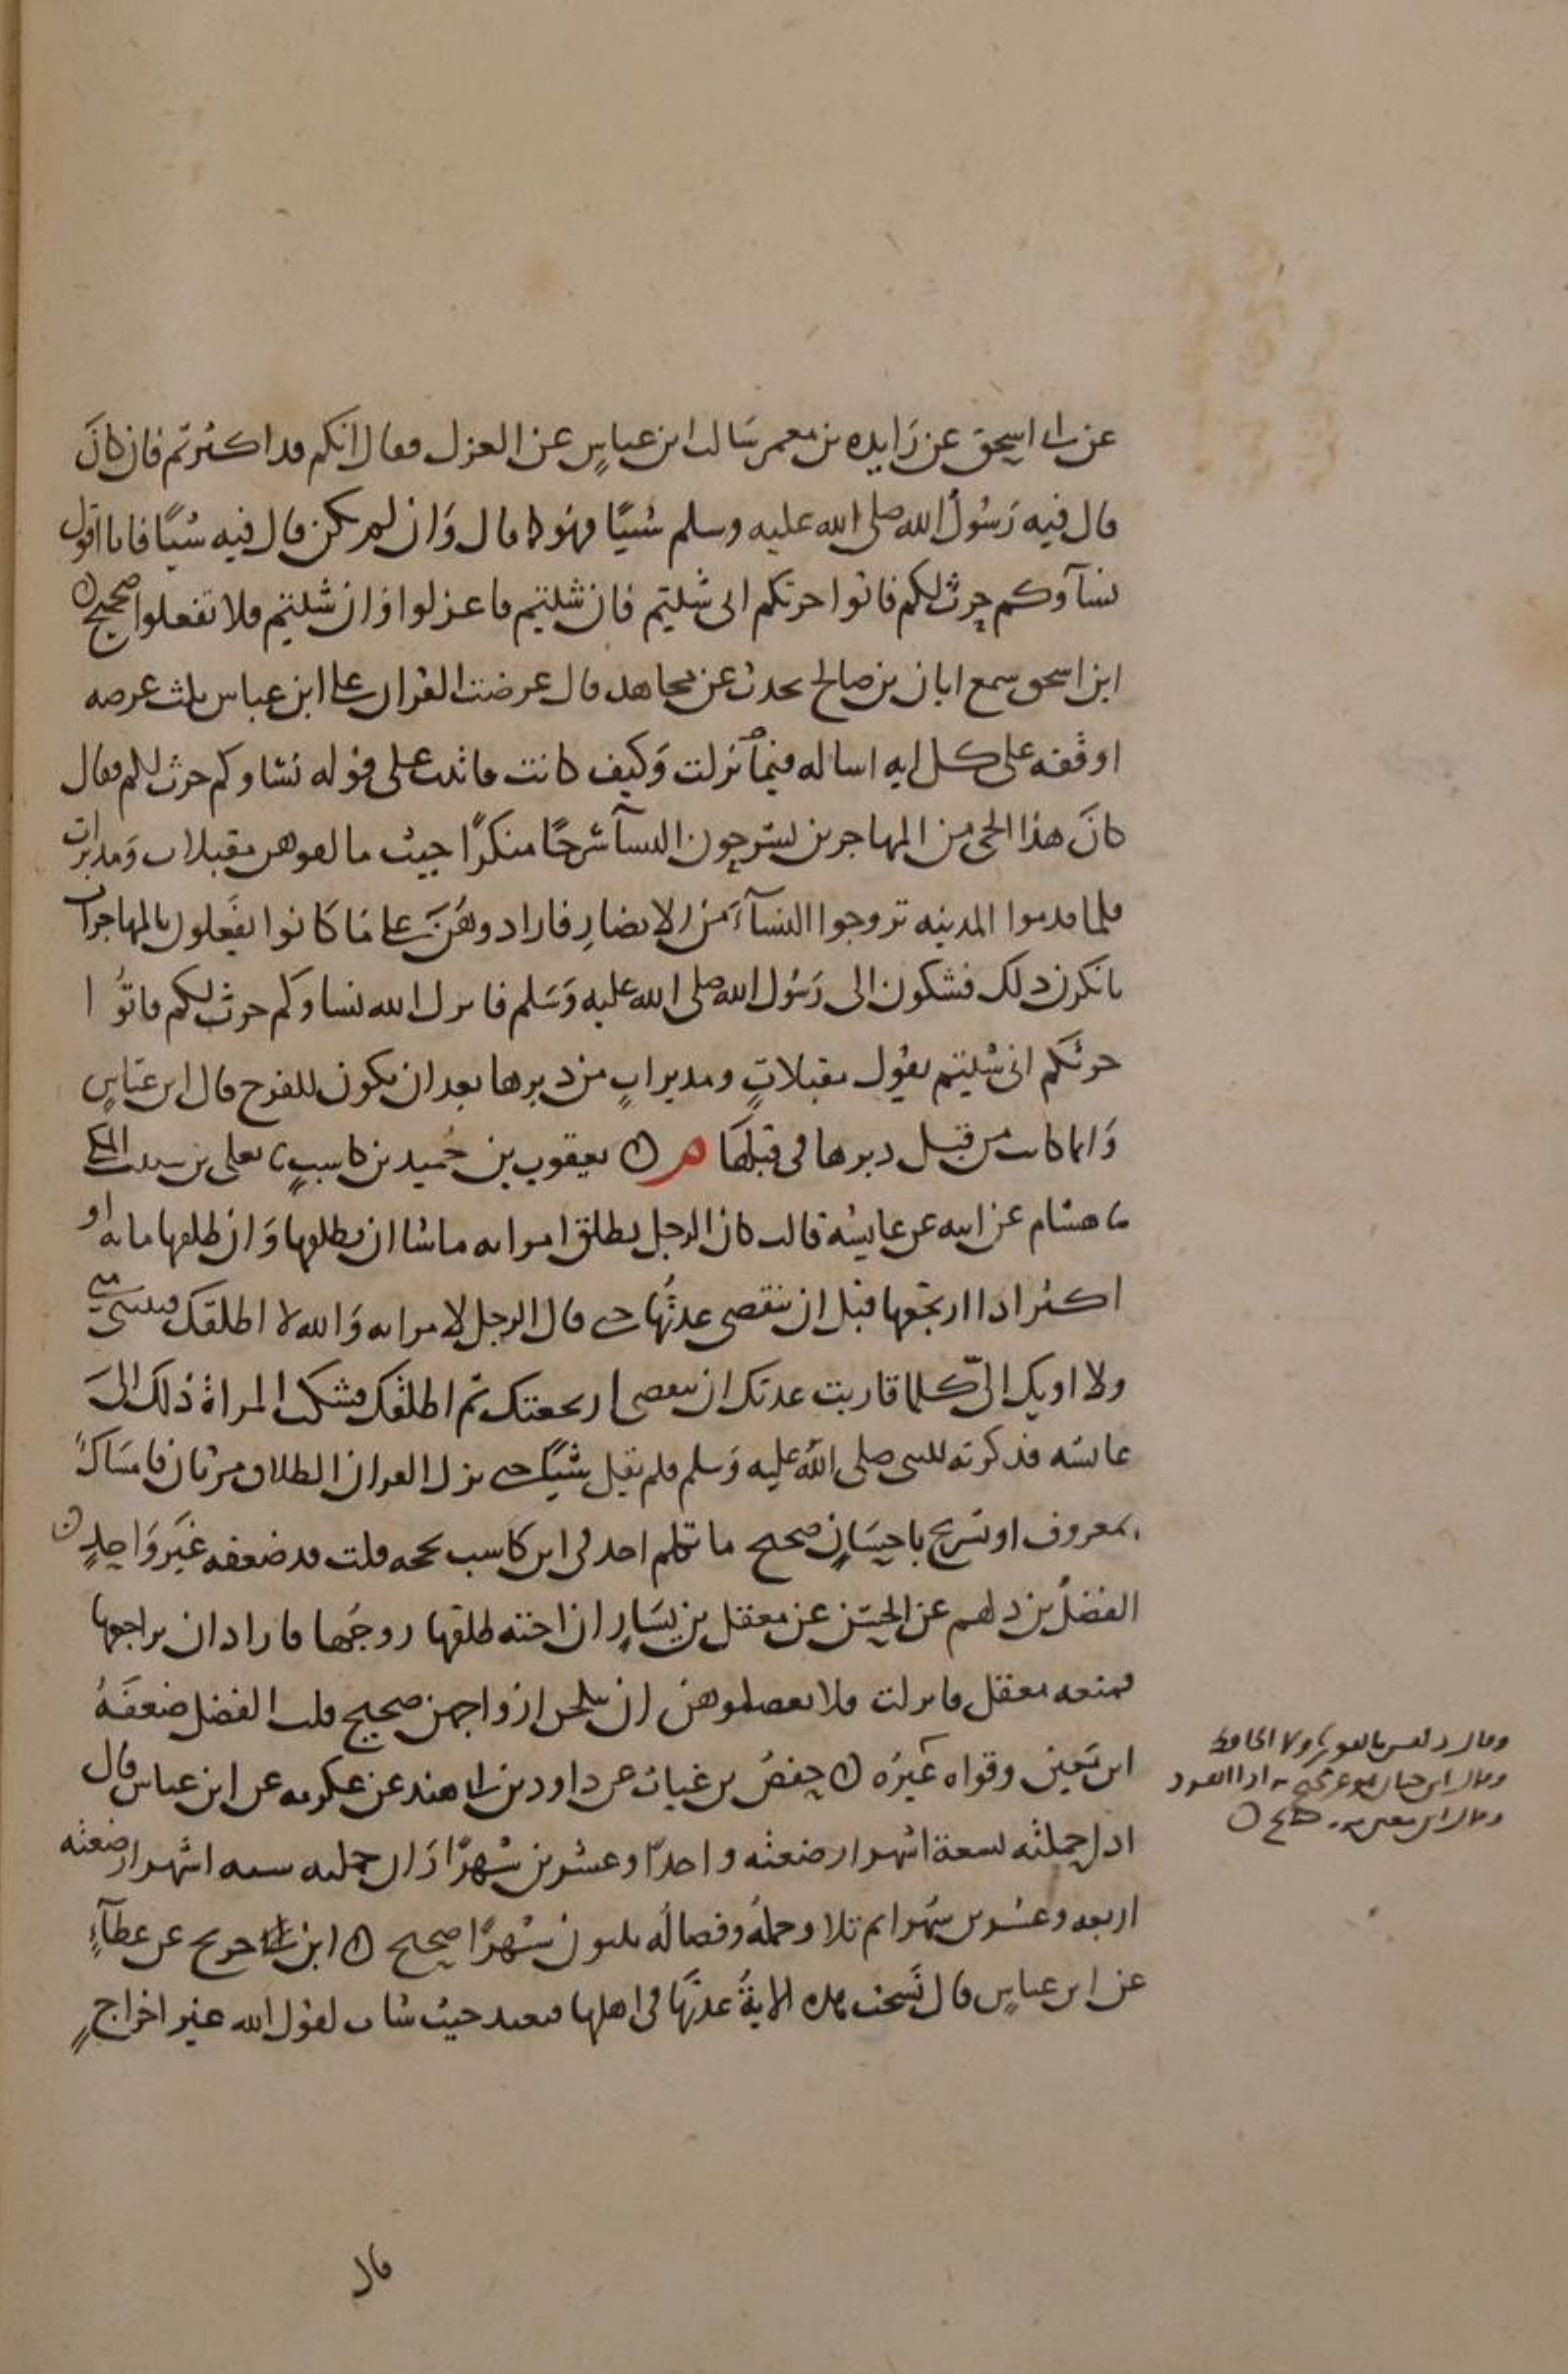 عن ابى اسحق عن زايده بن معمر سالت ابن عباس عن العزل فقال انكم قد اكثرتم فان كان
قال فيه رسول الله صلى الله عليه وسلم شيئا فهو كما قال وان لم يكن قال فيه شيئا فانا اقول
نساؤكم حرث لكم فاتوا حرثكم انى شئتم فان شئتم فاعزلوا وان شئتم فلا تفعلوا صحيح
ابن اسحق سمع ابان بن صالح يحدث عن مجاهد قال عرضت القران على ابن عباس ثلث عرضه
اوقفه على كل ايه اساله فيما نزلت وكيف كانت فاتيت على قوله نساوكم حرث لكم فقال
كان هذا الحى من المهاجرين يشرحون النسآ شرحا منكرا حيث ما لقوهن مقبلات ومدبرات
فلما قدموا المدينه تزوجوا النسآء من الانصار فارادوهن على ما كانوا يفعلون بالمهاجرات
فانكرن ذلك فشكون الى رسول الله صلى الله عليه وسلم فانزل الله نساوكم حرث لكم فاتوا
حرثكم انى شئتم يقول مقبلات ومدبرات من دبرها بعد ان يكون للفرج قال ابن عباس
وانما كانت من قبل دبرها فى قبلها يعقوب بن حميد بن كاسب ثنا يعلى بن شبيب المكى
ثنا هشام عن ابيه عن عايشه قالت كان الرجل يطلق امراته ماشا ان يطلقها وان طلقها مايه او
اكثر اذا ارتجعها قبل ان تنقضى عدتها حتى قال الرجل لامراته والله لا اطلقك فتبينى منى
ولا اويك الىّ كلما قاربت عدتك ان تنقضى ارتجعتك ثم اطلقك فشكت المراة ذلك الى
عايشه فذكرته للنبى صلى الله عليه وسلم فلم يقل شيئا حتى نزل القران الطلاق مرتان فامساك
بمعروف او تسريح باحسان صحيح ما تكلم احد فى ابن كاسب بحجه قلت قد ضعفه غير واحد
الفضل بن دلهم عن الحسن عن معقل بن يسار ان اخته طلقها زوجها فاراد ان يراجعها
فمنعه معقل فانزلت فلا تعضلوهن ان ينكحن ازواجهن صحيح قلت الفضل ضعفه
ابن معين وقواه غيره حفص بن غياث عن داود بن ابى هند عن عكرمه عن ابن عباس قال
اذا حملته تسعة اشهر ارضعته واحدا وعشرين شهرا وان حملته سته اشهر ارضعته
اربعه وعشرين شهرا ثم تلا وحمله وفصاله ثلثون شهرا صحيح ابن جريج عن عطآء
عن ابن عباس قال نسخت هذه الاية عدتها فى اهلها فتعتد حيث شات لقول الله غير اخراج
وقال
وقال ابن حبان
وقال ابن معين
قال